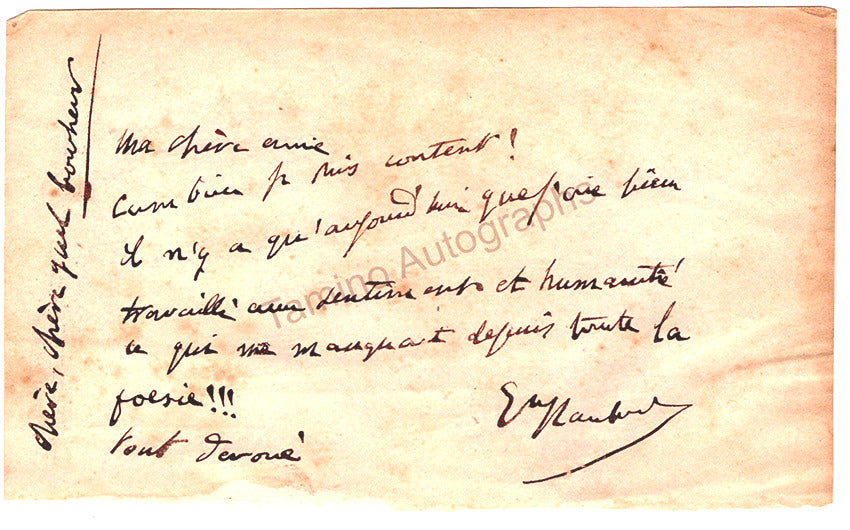 Ma chère amie
Combien je suis content!
il n'y a qu'aujourd'hui que j'aie bien
travaillé aux sentiments et humanité
ce qui me manquait depuis toute la
poesie!!!
tout devoué
chère, chère quel bonheur
Tamino Autographs